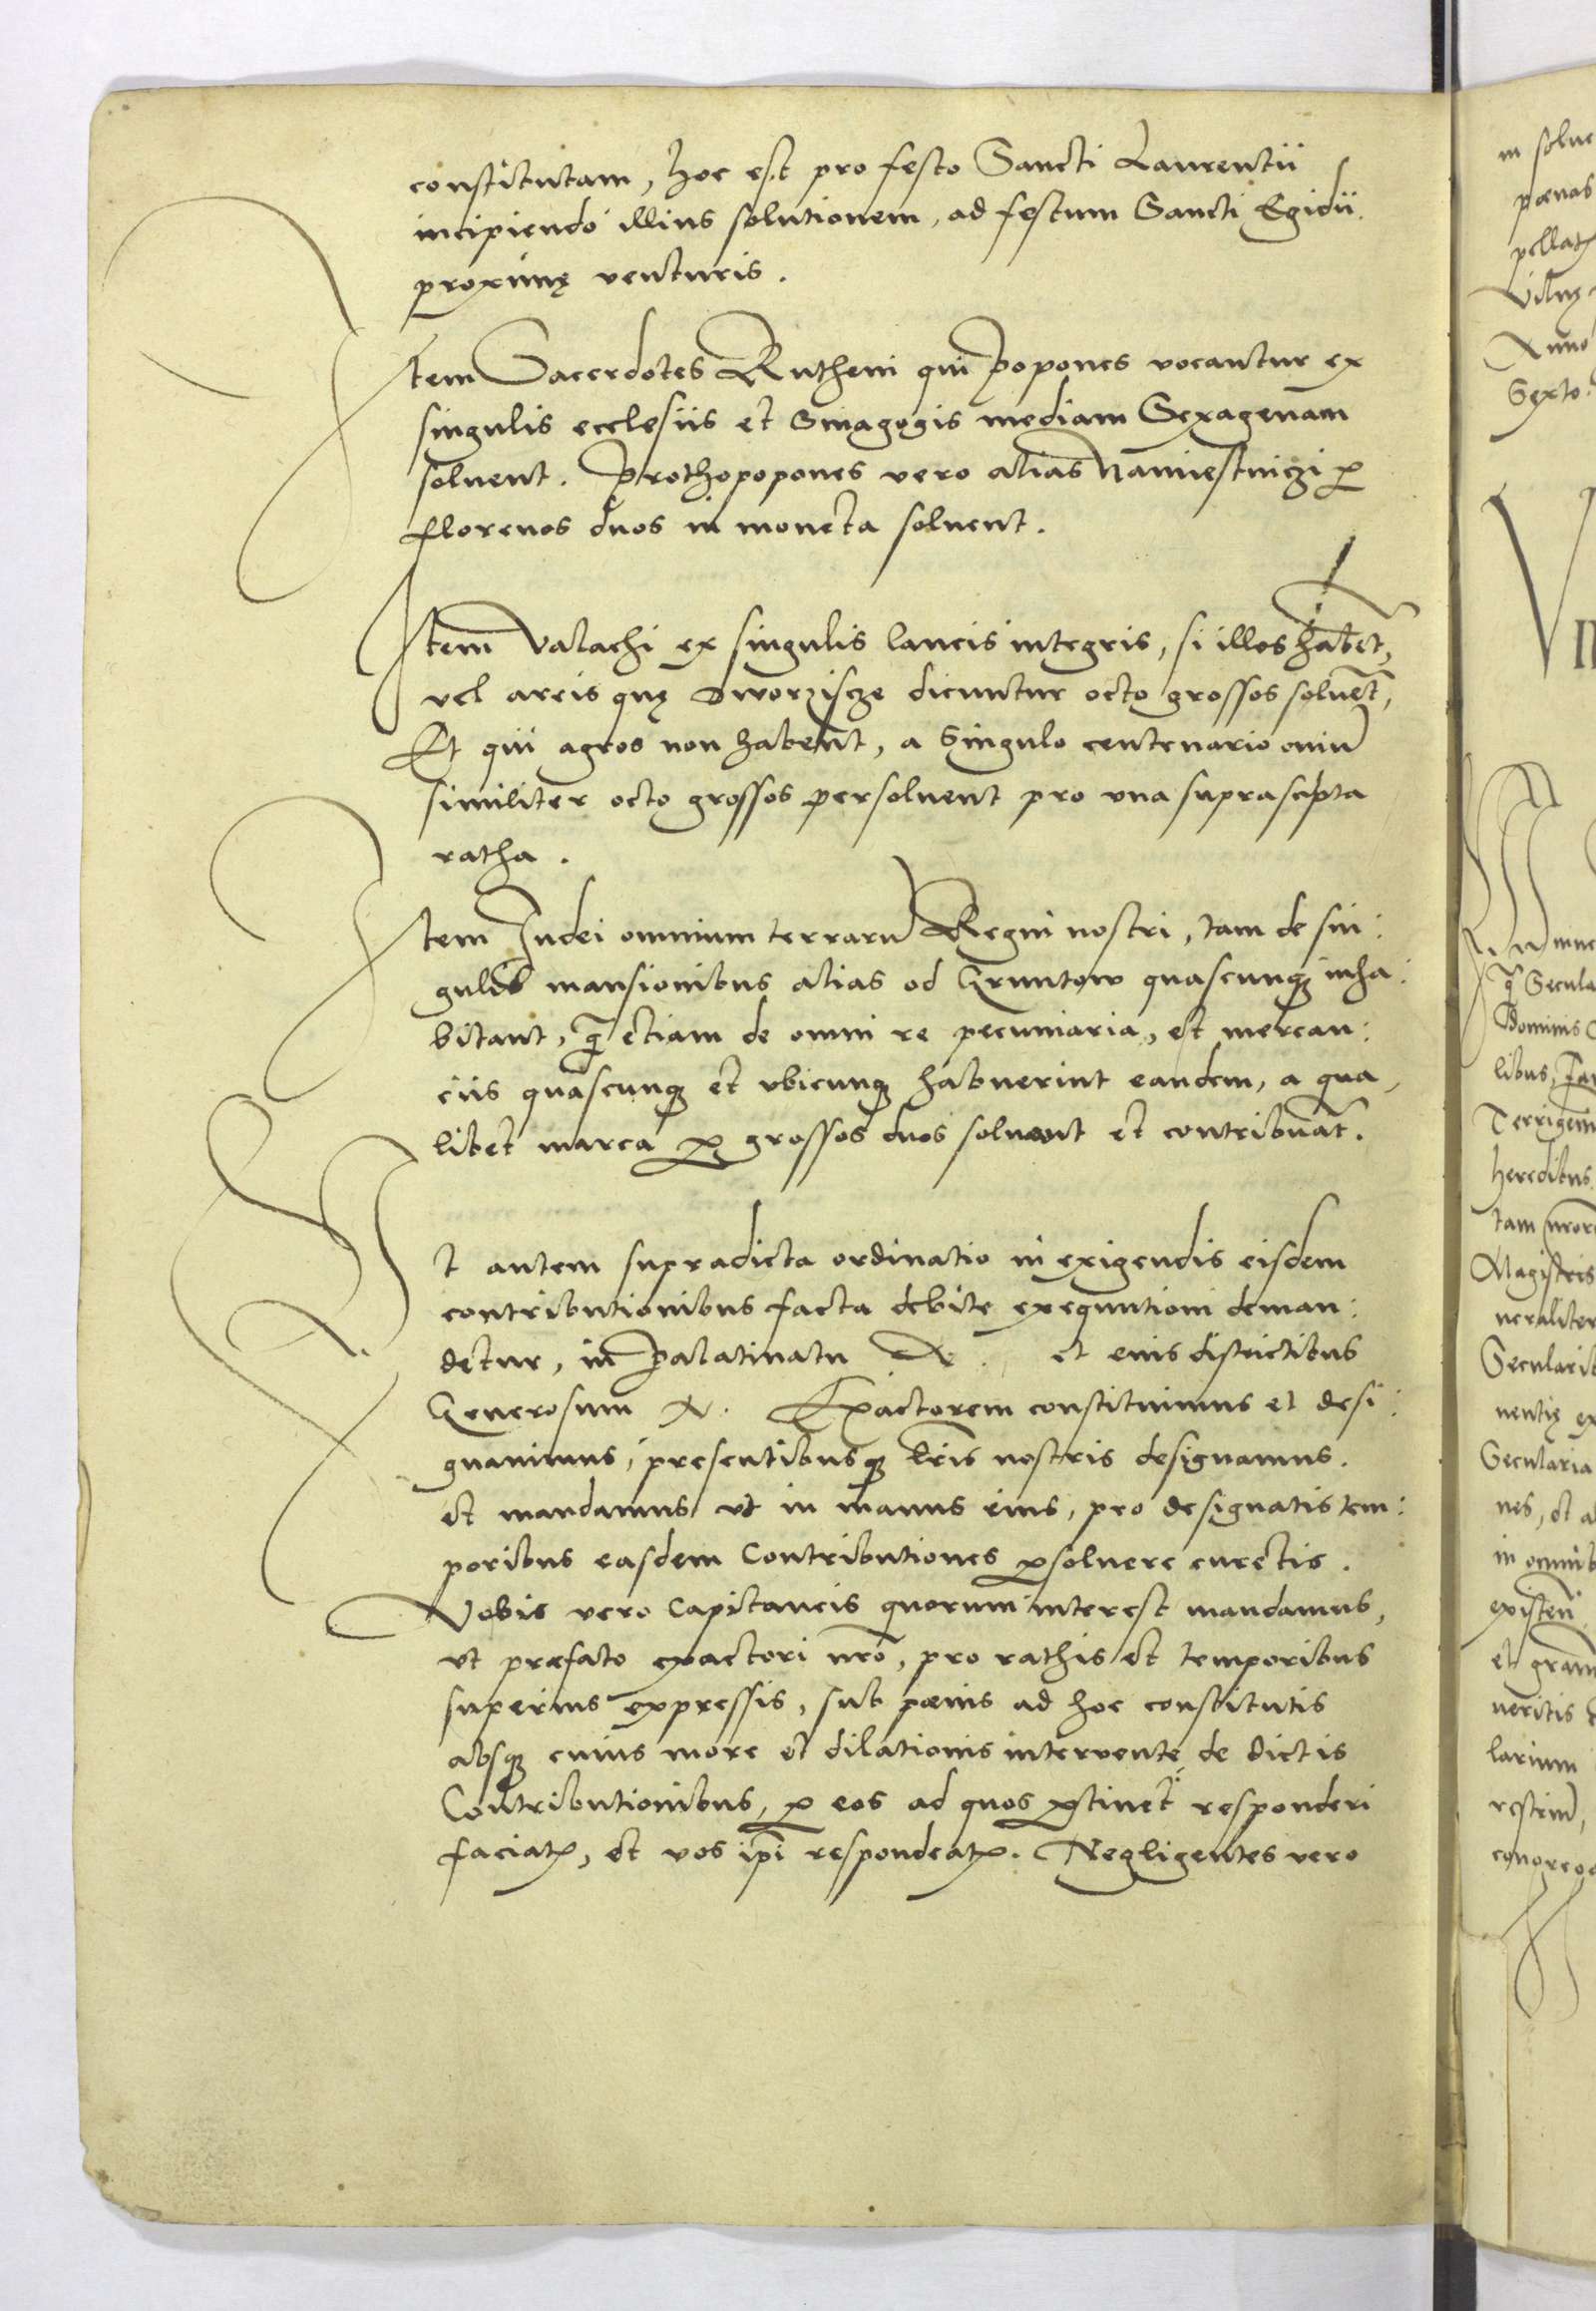 constitutam, hoc est pro festo Sancti Laurentii
incipiendo illius solutionem, ad festum Sancti Egidii
proximę venturis.
Item Sacerdotes Rutheni qui Popones vocantur ex
singulis ecclesiis et Sinagogis mediam Sexagenam
solvent. Prothopopones vero alias Namiestniczi ꝑ
florenos duos in moneta solvent.
Item Valachi ex singulis laneis integris, si illos habēt,
vel areis quę Dworziscze dicuntur octo grossos solvēt,
Et qui agros non habent, a Singulo centenario oviū
similiter octo grossos persolvent pro una suprascīpta
ratha.
Item Iudei omnium terrarū Regni nostri, tam de sin:
gulis mansionibus alias od Gruntow quascunqꝫ inha:
bitant, q̄ etiam de omni re pecuniaria, et mercan:
ciis quascunqꝫ et ubicunqꝫ habuerint eandem, a qua,
libet marca ꝑ grossos duos solvant et contribuāt.
Ut autem supradicta ordinatio in exigendis eisdem
contributionibus facta debite exequutioni deman:
detur, in Palatinatu N. et eius districtibus
Generosum N. Exactorem constituimus et desi:
gnavimus, presentibusqꝫ lr̄is nostris designamus.
et mandamus ut in manus eius, pro designatis tem:
poribus easdem Contributiones ꝑsolvere curetis.
Vobis vero Capitaneis quorum interest mandamus,
ut præfato exactori nr̄o, pro rathis et temporibus
superius expressis, sub pœnis ad hoc constitutis
absqꝫ cuius more et dilationis intervente, de dictis
Contributionibus, ꝑ eos ad quos ꝑtinet responderi
faciatꝭ, et vos ip̄i respondeatꝭ. Negligentes vero
in solve
pœnas
pellatꝭ
Vilnę
Anno
Sexto.
VII
q̄ Secula
Dominis
libus,
Terrigenis
hereditus
tam
Magistris
neraliter
Secularib
nentię ex
Secularia
nes, et a
in omnib
existen̄
et gram̄
veritis
larium
restrim̄,
congreg